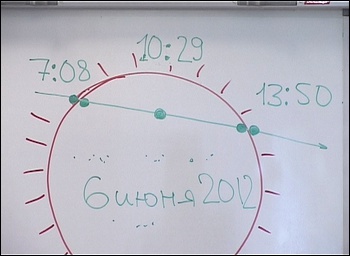 10:29
7:08
13:50
6 июня 2012